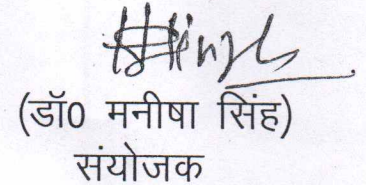 (डॉ0 मनीषा सिंह)
संयोजक